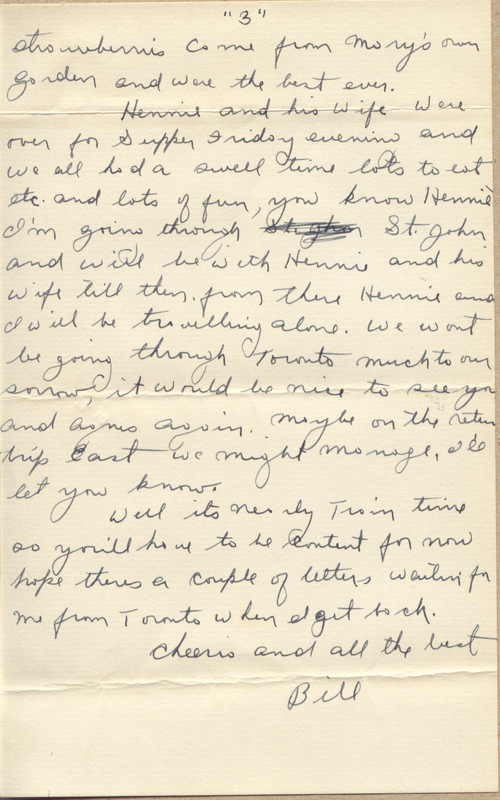 "3"
strawberries come from Mary's own
garden and were the best ever.
Hennie and his wife were
over for Supper Friday evening and
we all had a swell time lots to eat
etc. and lots of fun, you know Hennie
I'm going through St. John
and will be with Hennie and his
wife till then. from there Hennie and
I will be travelling alone. We wont
be going through Toronto much to our
sorrow, it would be nice to see you
and again. Maybe on the return
trip East we might manage, I'll
let you know.
Well its nearly Train time
so you'll have to be content for now
hope theres a couple of letters waiting for
me from Toronto when I get back.
Cheerio and all the best
Bill